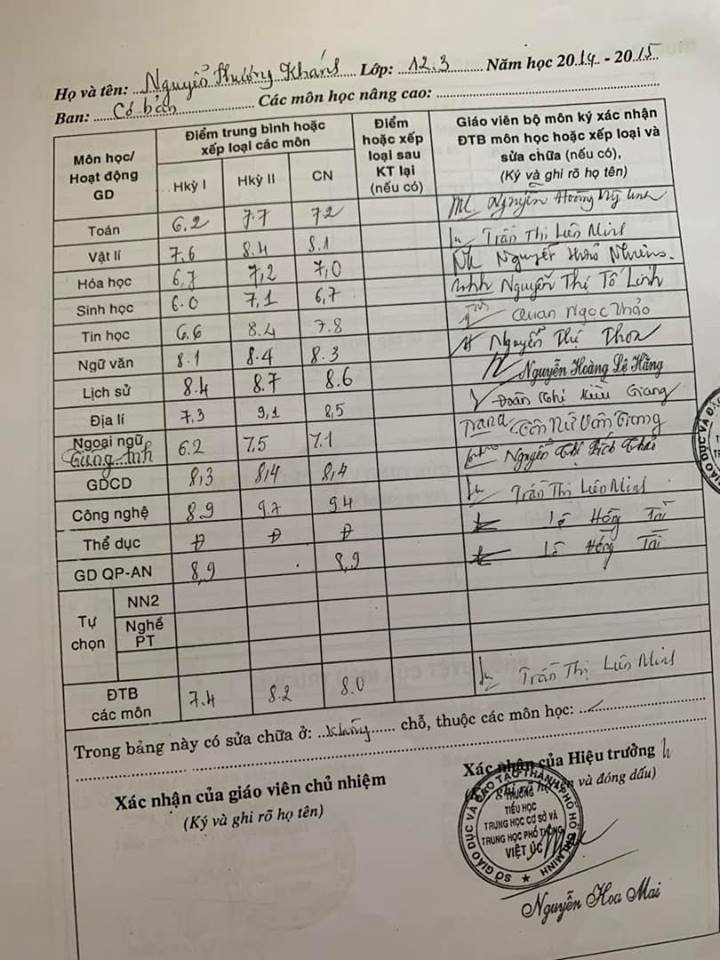 Họ và tên: Nguyễn Phương Khánh Lớp: 12.3 Năm học 2014 - 2015
Ban: Cơ bản Các môn học nâng cao:
Môn học/ Hoạt động GD
Điểm trung bình hoặc xếp loại các môn
Hkỳ I Hkỳ II CN
Điểm hoặc xếp loại sau KT lại (nếu có)
Giáo viên bộ môn ký xác nhận ĐTB môn học hoặc xếp loại và sửa chữa (nếu có),
(Ký và ghi rõ họ tên)
Toán 6.2 7.7 7.2 Nguyễn Hoàng Mỹ Linh
Vật lí 7.6 8.4 8.1 Trần Thị Liên Minh
Hóa học 6,7 7,2 7,0 Nguyễn
Sinh học 6.0 7,1 6,7 Nguyễn Thị Tố Linh
Tin học 6.6 8.4 7.8 Quan Ngọc Thảo
Ngữ văn 8.1 8.4 8.3 Nguyễn Thị Thoa
Lịch sử 8.4 8.7 8.6 Nguyễn Hoàng Lê Hằng
Địa lí 7.3 9,1 8,5 Đoàn Giang
Ngoại ngữ Tiếng Anh 6.2 7.5 7.1 Tôn Nữ Vân Trang
GDCD 8,3 8,4 8,4 Nguyễn Thị Bích
Công nghệ 8.9 9.7 9.4 Trần Thị Liên Minh
Thể dục Đ Đ Đ Lê Hồng Tài
GD QP-AN 8,9 8,9 Lê Hồng Tài
Tự chọn
NN2
Nghề PT
ĐTB các môn 7.4 8.2 8.0 Trần Thị Liên Minh
Trong bảng này có sửa chữa ở: không chỗ, thuộc các môn học:
Xác nhận của giáo viên chủ nhiệm
(Ký và ghi rõ họ tên)
Xác nhận của Hiệu trưởng
(Ký, ghi rõ họ tên và đóng dấu)
SỞ GIÁO DỤC VÀ ĐÀO TẠO THÀNH PHỐ HỒ CHÍ MINH
TRƯỜNG
TIỂU HỌC
TRUNG HỌC CƠ SỞ VÀ
TRUNG HỌC PHỔ THÔNG
VIỆT ÚC
Nguyễn Hoa Mai